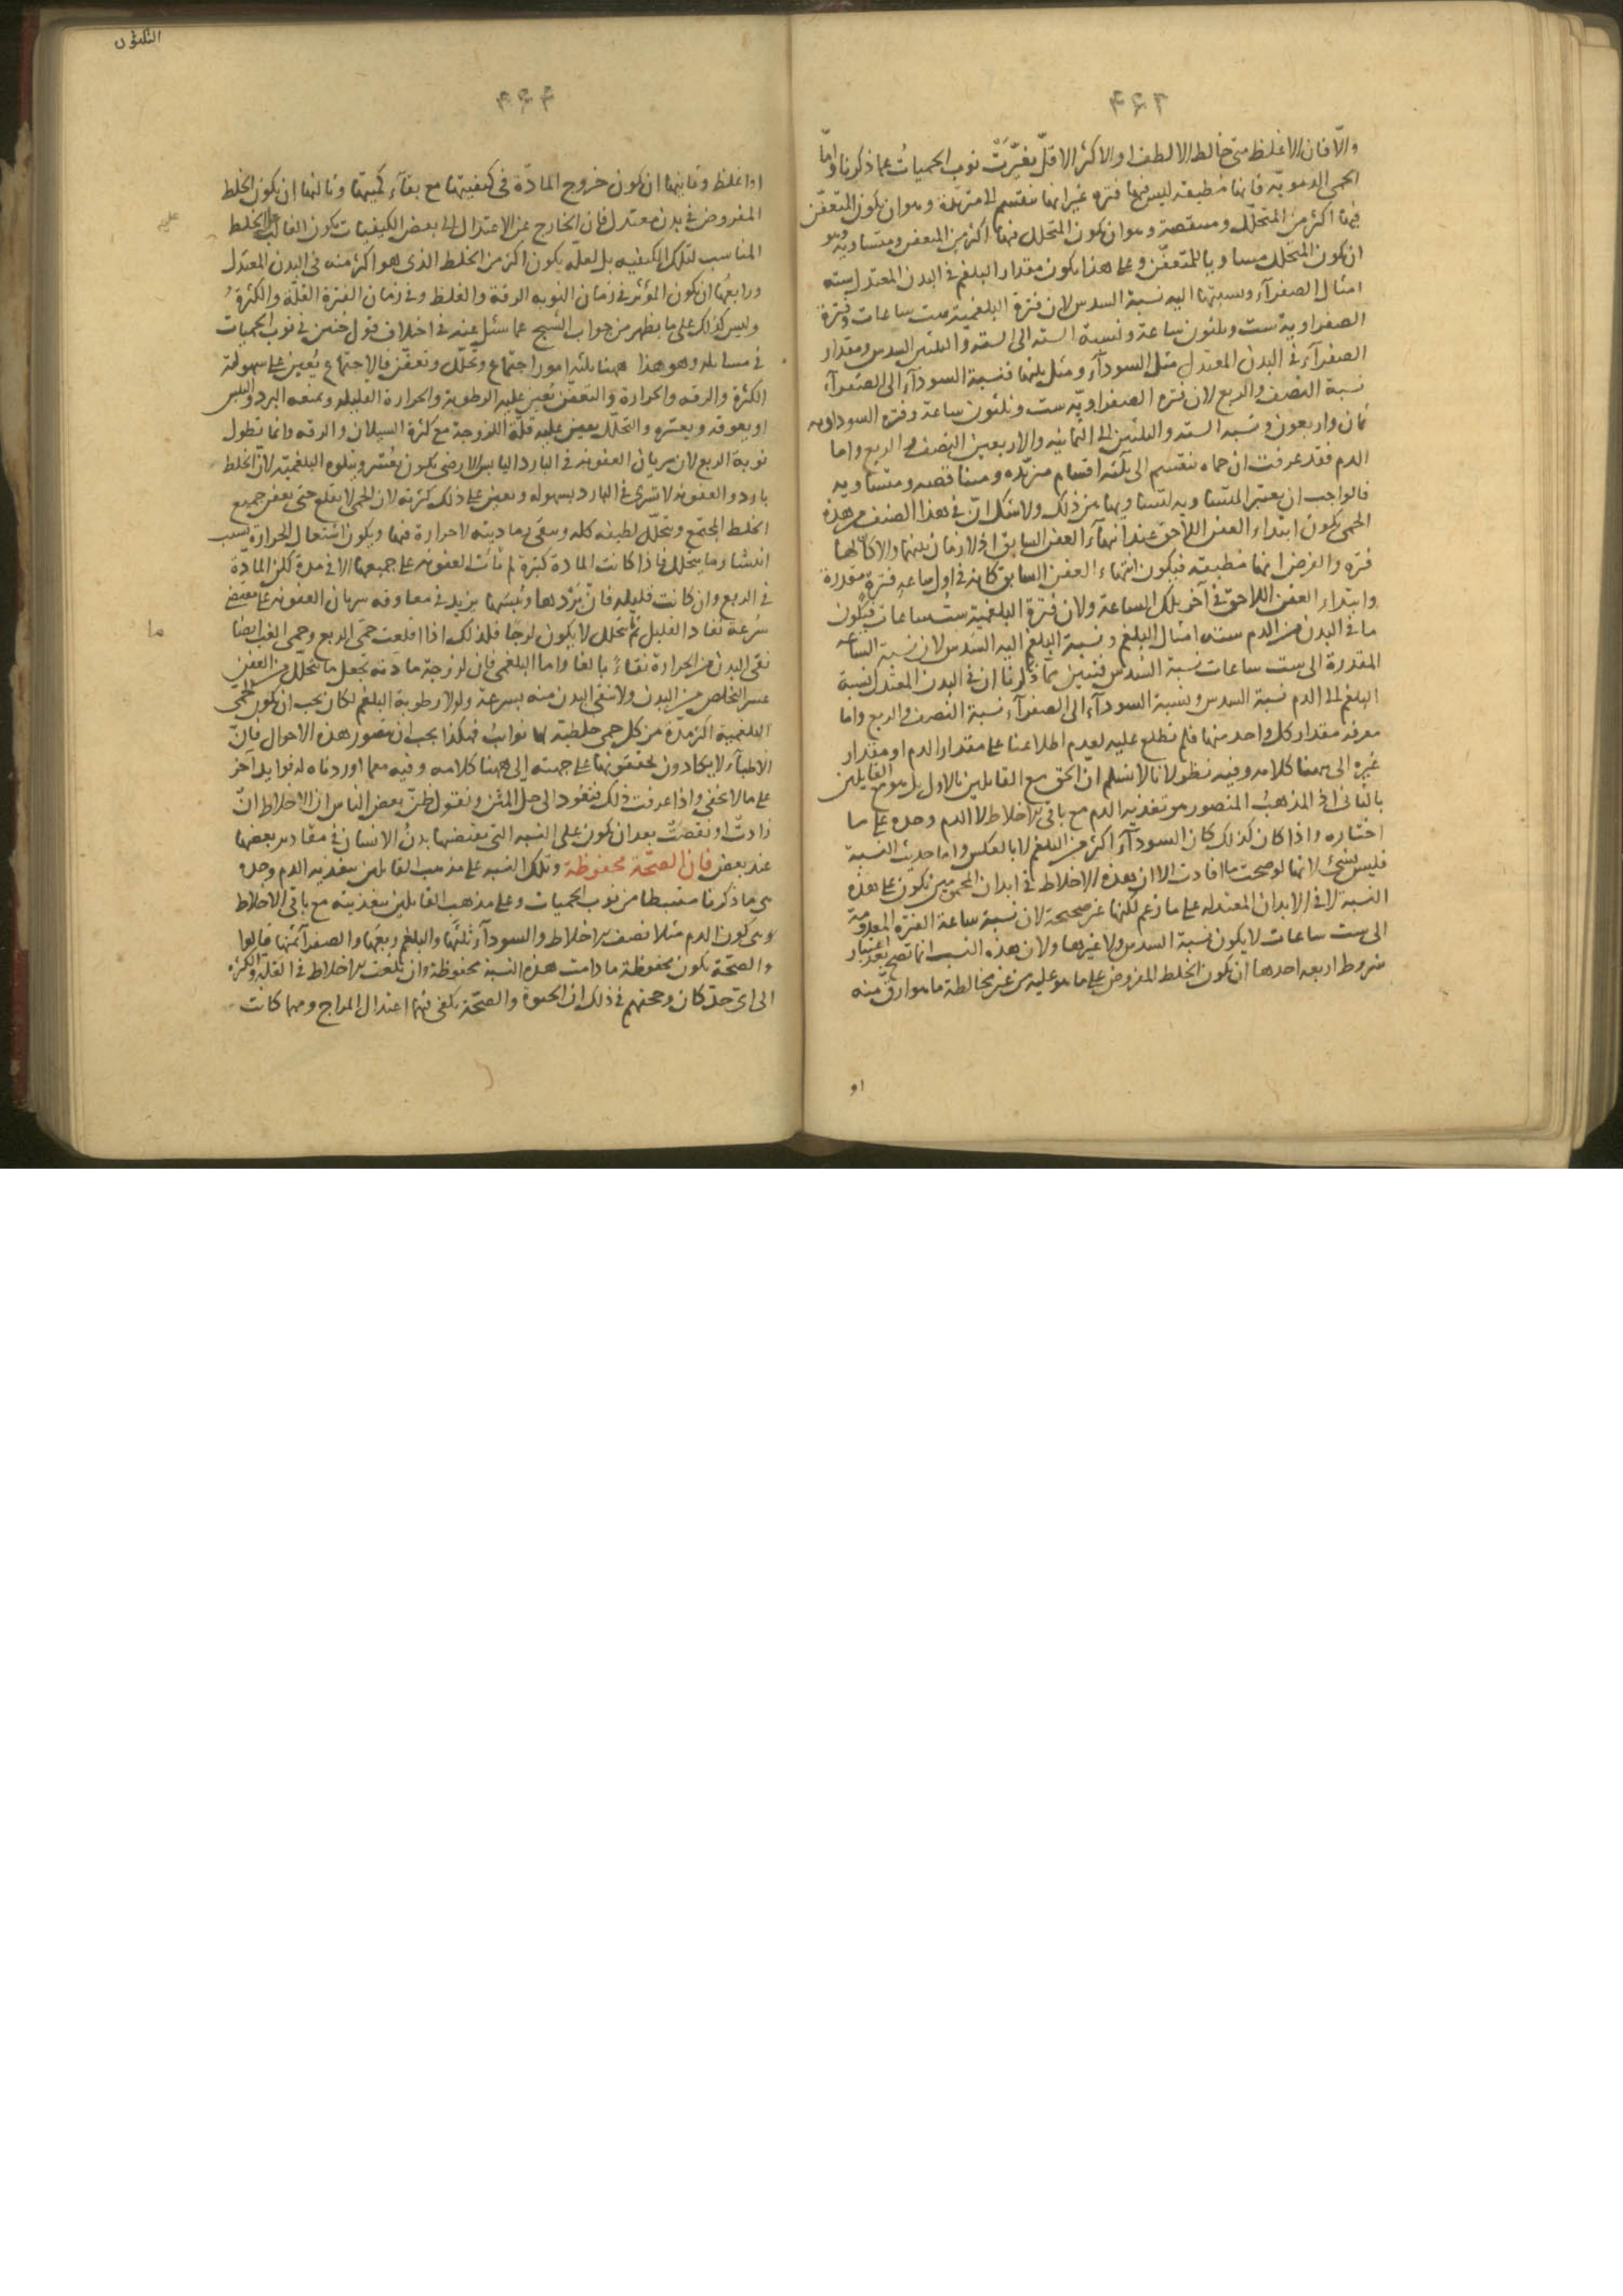 ۴۶۳
والّا فان الاغلظ متى خالط الالطف او الاكثر الاقلّ تغيّرَتْ نوب الحميات عما ذكرنا وامّا
الحمى الدمويّة فانها مطبقة ليس فيها فترة غير انها تنقسم الى متزيّدة وهو ان يكون المتعفّن
فيها اكثر من المتحلّل ومنتقصة وهو ان يكون المتحلل فيها اكثر من المتعفن ومتساوية وهو
ان يكون المتحلّل مساويا للمتعفّن وعلى هذا يكون مقدار البلغم في البدن المعتدل ستة
امثال الصفرآء ونسبتها اليه نسبة السدس لان فترة البلغمية ست ساعات وفترة
الصفراوية ست وثلثون ساعة ونسبة الستة الى الستة والثلثين السدس ومقدار
الصفرآء في البدن المعتدل مثل السودآء ومثل ثلثها فنسبة السودآء الى الصفرآء
نسبة النصف والربع لان فترة الصفراويّة ست وثلثون ساعة وفترة السوداوية
ثمان واربعون ونسبة الستة والثلثين الى الثمانية والاربعين النصف والربع واما
الدم فقد عرفت ان حماه تنقسم الى ثلثة اقسام متزيّدة ومتناقصة ومتساوية
فالواجب ان يعتبر المتساوية لتساويها من ذلك ولا شك انّ في هذا الصنف من هذه
الحمى يكون ابتداء العفن اللاحق عند انتهآء العفن السابق اذ لا زمان بينهما والا كان لها
فترة والفرض انها مطبقة فيكون انتهاء العفن السابق كانه في اول ساعة فترة مقدرة
وابتداء العفن اللاحق في آخر تلك الساعة ولان فترة البلغمية ست ساعات فيكون
ما في البدن من الدم ستة امثال البلغم ونسبة البلغم اليه السدس لان نسبة الساعة
المقدرة الى ست ساعات نسبة السدس فتبين مما ذكرنا ان في البدن المعتدل نسبة
البلغم الى الدم نسبة السدس ونسبة السودآء الى الصفرآء نسبة النصف والربع واما
معرفة مقدار كل واحد منها فلم نطلع عليه لعدم اطلاعنا على مقدار الدم او مقدار
غيره الى ههنا كلامه وفيه نظر لانا لا نسلم انّ الحق مع القايلين بالاول بل هو مع القايلين
بالثاني اذ المذهب المنصور هو تغذية الدم مع باقي الاخلاط لا الدم وحده على ما
اختاره واذا كان كذلك كان السودآء اكثر من البلغم لا بالعكس واما حديث النسبة
فليس بشئ لانها لو صحت ما افادت الا ان هذه الاخلاط في ابدان المحمومين تكون على هذه
النسبة لا في الابدان المعتدلة على ما زعم لكنها غير صحيحة لان نسبة ساعة الفترة المعدومة
الى ست ساعات لا يكون نسبة السدس ولا غيرها ولان هذه النسب انما تصح بعد اعتبار
شروط اربعة احدها ان يكون الخلط المفروض على ما هو عليه من غير مخالطة ما هو ارق منه
او
۴۶۴
الثلثون
او اغلظ وثانيها ان يكون خروج المادّة في كيفيتها مع بقآء كميتها وثالثها ان يكون الخلط
المفروض في بدن معتدل فان الخارج عن الاعتدال الى بعض الكيفيات يكون الغالب عليه الخلط
المناسب لتلك الكيفيه بل لعله يكون اكثر من الخلط الذي هو اكثر منه في البدن المعتدل
ورابعها ان يكون المؤثر في زمان النوبة الرقة والغلظ وفي زمان الفترة القلّة والكثرة
وليس كذلك على ما يظهر من جواب الشيخ عما سئل عنه في اختلاف قول حنين في نوب الحميات
في مسايله وهو هذا ههنا ثلثة امور اجتماع وتحلّل وتعفّن فالاجتماع يُعين على سهولته
الكثرة والرقه والحرارة والتعفن تُعين عليه الرطوبة والحرارة القليله وتمنعه البرد واليبس
او يعوقه ويعسّره والتحلّل يعين عليه قلّة اللزوجة مع كثرة السيلان والرقه وانما تطول
نوبة الربع لان سريان العفونة في البارد اليابس الارضى يكون بعُسر ويتلوه البلغميّة لان الخلط
بارد والعفونة لا تسرى في البارد بسهوله ويعين على ذلك كثرته لان الحمى لا تقلع حتى يعفن جميع
الخلط المجتمع ويتحلّل لطيفه كله وسقى رماديته لا حرارة فيها ويكون اشتعال الحرارة بسبب
انتشار ما يتحلل فاذا كانت المادة كثيرة لم تأت العفونة على جميعها الا في مدة لكن المادّة
في الربع وان كانت قليلة فان بَرْدها ويُبسَها يزيد في معاوقة سريان العفونة على مقتضى
سُرعة نفاد القليل ثم ما يتحلل لا يكون لزجًا فلذلك اذا اقلعت حمّى الربع وحمى الغب ايضا
نقى البدن من الحرارة نقاءً بالغا واما البلغمى فان لزوجة مادّته تجعل ما يتحلّل من العفن
عسر التخلّص من البدن ولا ينقى البدن منه بسرعة ولولا رطوبة البلغم لكان يجب ان يكون الحمى
البلغمية اكثر مدّة من كل حمى خلطية لها نوائب فهكذا يجب ان تتصور هذه الاحوال فانّ
الاطبآء لا يكادون يحققونها على جهته الى ههنا كلامه وفيه مما اوردناه له فوايد آخر
على ما لا يخفى واذا عرفت ذلك فنعود الى حل المتن ونقول ظنّ بعض الناس ان الاخلاط انْ
زادتْ او نقصَتْ بعد ان يكون على النسبه التي يقتضيها بدنُ الانسان في مقادير بعضها
عند بعض فان الصحّة محفوظة وتلك النسبه على مذهب القايلين بتغذية الدم وحده
هي ما ذكرنا مستنبطا من نوب الحميات وعلى مذهب القايلين بتغذيته مع باقي الاخلاط
هي كون الدم مثلا نصف الاخلاط والسودآء ثلثَها والبلغم ربعَها والصفرآء ثمنَها قالوا
والصحّة يكون محفوظة ما دامت هذه النسبة محفوظة وان بلغت الاخلاط في القلّة والكثرة
الى اىّ حدّ كان وحجتهم في ذلك ان الحيوة والصحّة يكفى فيهما اعتدال المزاج ومهما كانت
ما